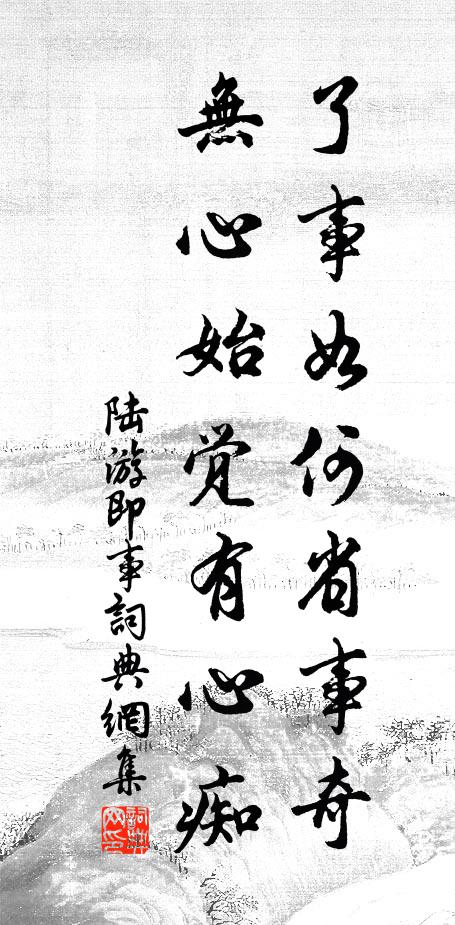 了事如何省事奇
無心始觉有心痴
陆游即事詞典網集